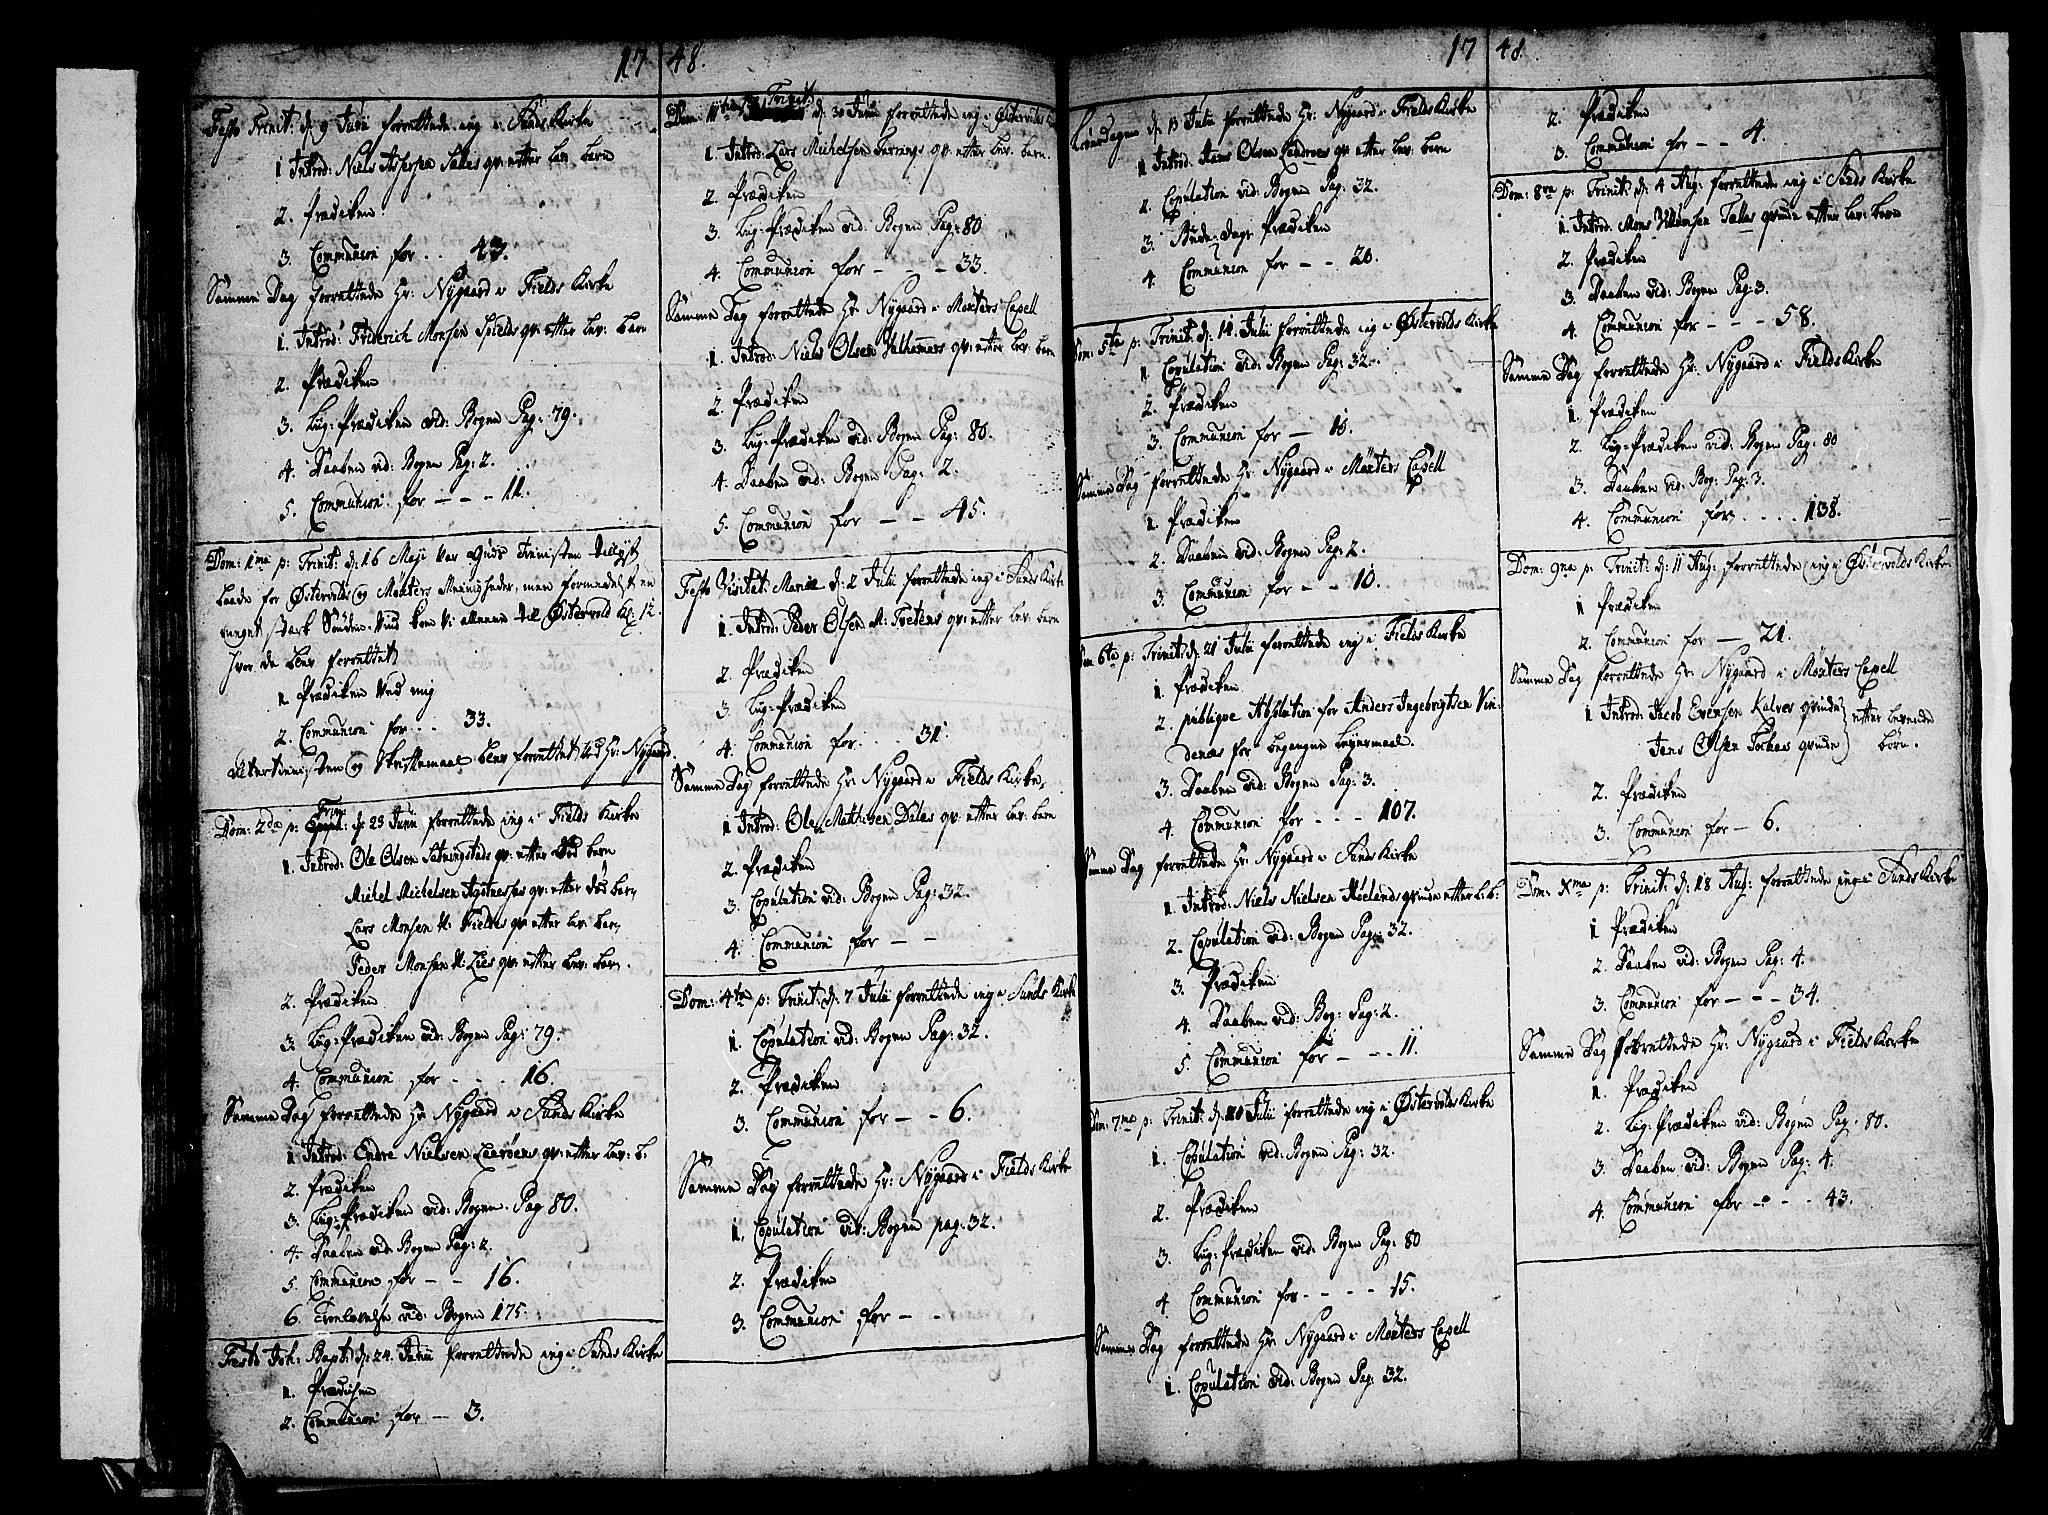 17 48.
Festo Trinit: d: 9 Junii forrettede ieg i Sunds Kirke
1 Introd: Niels qv: efter lev: barn
2. Prædiken
3. Communion for . . 43.
Samme Dag forrettede Hr: Nygaard i Fields Kirke
1. Introd: Friderich Monsen qv: efter lev: barn
2. Prædiken
3. Liig-Prædiken vid: Bogen Pag: 79.
4. Daaben vid: Bogen Pag: 2.
5. Communion for - - - 11.
Dom: 1ma p: Trinit: d: 16 Maji var Guds Tienisten
baade for Østervolds og Møxters Meenigheder, men formedelst en
stærk Sønden-Vind kom vi allene til Østervold Kl: 12.
hvor da blev forrettet
1. Prædiken ved mig
2. Communion for . . . 33.
og Skriftemaal blev forrettet ved Hr: Nygaard.
Dom: 2da p: Trin: d: 23 Junii forrettede ieg i Fields Kirke
1. Introd: Ole Olsen qv: efter død barn
Michel Michelsen qv: efter død barn
Lars Monsen N: Fieldes qv: efter lev: barn
Peder Monsen N: Lies qv: efter lev: barn.
2. Prædiken
3. Liig-Prædiken vid: Bogen Pag: 79.
4. Communion for . . . 16.
Samme Dag forrettede Hr Nygaard i Sunds Kirke
1 Introd: Endre Nielsen qv: efter lev: b:
2. Prædiken
3. Liig-Prædiken vid: Bogen Pag 80.
4. Daaben vid: Bogen Pag: 2.
5. Communion for - - 16.
6. Trolovelse vid: Bogen 175.
Festo Joh: Bapt: d: 24. Junii forrettede ieg i Sunds Kirke
1. Prædiken
2. Communion for - 3.
Dom: Trinit: d: 30 Junii forrettede ieg i Østervolds
1. Introd: Lars Michelsen qv: efter lev: barn.
2. Prædiken
3. Liig-Prædiken vid: Bogen Pag: 80
4. Communion for - - - 33.
Samme Dag forrettede Hr Nygaard i Møxters Capell
1. Introd: Niels Olsen qv: efter lev: barn
2. Prædiken
3. Liig-Prædiken vid: Bogen Pag: 80.
4. Daaben vid: Bogen Pag: 2.
5. Communion for - - 45.
Festo Visitat: Mariæ d: 2 Julii forrettede ieg i Sunds Kirke
1. Introd: Peder Olsen N: Tvetens qv: efter lev: barn
2. Prædiken
3. Liig-Prædiken
4. Communion for. . . 31.
Samme Dag forrettede Hr: Nygaard i Fields Kirke,
1 Introd: Ole Mathisen Dales qv: efter lev: barn
2. Prædiken
3. Copulation vid: Bogen Pag: 32.
4. Communion for - -
Dom: 4ta p: Trinit: d: 7 Julii forrettede ieg i Sunds Kirke
1. Copulation vid: Bogen Pag: 32.
2. Prædiken
3. Communion for - - 6.
Samme Dag forrettede Hr: Nygaard i Fields Kirke
1. Copulation vid: Bogen pag: 32.
2. Prædiken
3. Communion for - -
17 48.
d: 13 Julii forrettede Hr: Nygaard i Fields Kirke
1 Introd: Hans Olsen qv: efter lev: barn
2. Copulation vid: Bogen Pag: 32.
3. Prædiken
4. Communion for - - 20.
Dom: 5ta p: Trinit: d: 14. Julii forrettede ieg i Østervolds Kirke
1. Copulation vid: Bogen Pag: 32.
2. Prædiken
3. Communion for - 10.
Samme Dag forrettede Hr: Nygaard i Møxters Capell
1. Prædiken
2. Daaben vid: Bogen Pag: 2.
3. Communion for - - 10.
Dom 6ta p: Trinit: d: 21 Julii forrettede ieg i Fields Kirke
1. Prædiken.
2. publique Absolution for Anders Ingebrigtsen Vin-
denæs for begangne Leiermaal.
3. Daaben vid: Bogen Pag: 3.
4. Communion for - - - 107.
Samme Dag forrettede Hr: Nygaard i Sunds Kirke
1. Introd: Niels Nielsen qvinde efter l: b:
2. Copulation vid: Bogen Pag: 32.
3. Prædiken
4. Daaben vid: Bog: Pag: 2.
5. Communion for - - - 11.
Dom: 7ma p: Trinit: d: Julii forrettede ieg i Østervolds Kirke
1. Copulation vid: Bogen Pag: 32.
2. Prædiken
3. Liig-Prædiken vid: Bogen Pag: 80
4 Communion for - - - - 15.
Samme Dag forrettede Hr: Nygaard i Møxters Capell
1. Copulation vid: Bogen Pag: 32.
2. Prædiken
3. Communion for - - 4.
Dom: 8va p: Trinit: d: 4 Aug: forrettede ieg i Sunds Kirke
1. Introd: Mons qvinde efter lev: barn
2. Prædiken
3. Daaben vid: Bogen Pag: 3.
4. Communion for - - - 58.
Samme Dag forrettede Hr: Nygaard i Fields Kirke
1. Prædiken
2. Liig-Prædiken vid: Bogen Pag: 80
3. Daaben vid: Bog: Pag: 3.
4. Communion for . . . . 138.
Dom: 9na p: Trinit: d: 11 Aug: forrettede ieg i Østervolds Kirke
1 Prædiken
2. Communion for - 21.
Samme Dag forrettede Hr: Nygaard i Møxters Capell
1 Introd: Jacob Evensen Kalves qvinde } efter levende
Jens Olsen qvinde } børn.
2. Prædiken
3. Communion for - 6.
Dom: Xma p: Trinit: d: 18 Aug: forrettede ieg i Sunds Kirke
1 Prædiken
2. Daaben vid: Bogen Pag: 4.
3. Communion for - - - 34.
Samme Dag forrettede Hr: Nygaard i Fields Kirke
1. Prædiken
2. Liig-Prædiken vid: Bogen Pag: 80.
3. Daaben vid: Bogen Pag: 4.
4. Communion for - - - 43.